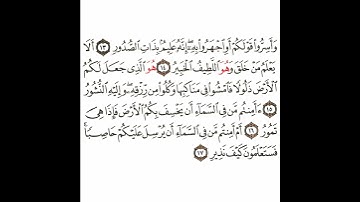 وَأَسِرُّوا۟ قَوْلَكُمْ أَوِ ٱجْهَرُوا۟ بِهِۦٓ ۖ إِنَّهُۥ عَلِيمٌۢ بِذَاتِ ٱلصُّدُورِ ١٣ أَلَا
يَعْلَمُ مَنْ خَلَقَ وَهُوَ ٱللَّطِيفُ ٱلْخَبِيرُ ١٤ هُوَ ٱلَّذِى جَعَلَ لَكُمُ
ٱلْأَرْضَ ذَلُولًا فَٱمْشُوا۟ فِى مَنَاكِبِهَا وَكُلُوا۟ مِن رِّزْقِهِۦ ۖ وَإِلَيْهِ ٱلنُّشُورُ
١٥ ءَأَمِنتُم مَّن فِى ٱلسَّمَآءِ أَن يَخْسِفَ بِكُمُ ٱلْأَرْضَ فَإِذَا هِىَ
تَمُورُ ١٦ أَمْ أَمِنتُم مَّن فِى ٱلسَّمَآءِ أَن يُرْسِلَ عَلَيْكُمْ حَاصِبًا ۖ
فَسَتَعْلَمُونَ كَيْفَ نَذِيرِ ١٧